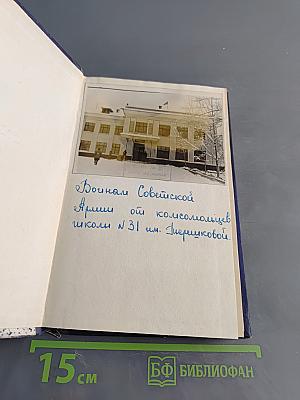 Воинам Советской
Армии от комсомольцев
школы N 31 им. Терешковой.
15 см
БФ БИБЛИОФАН